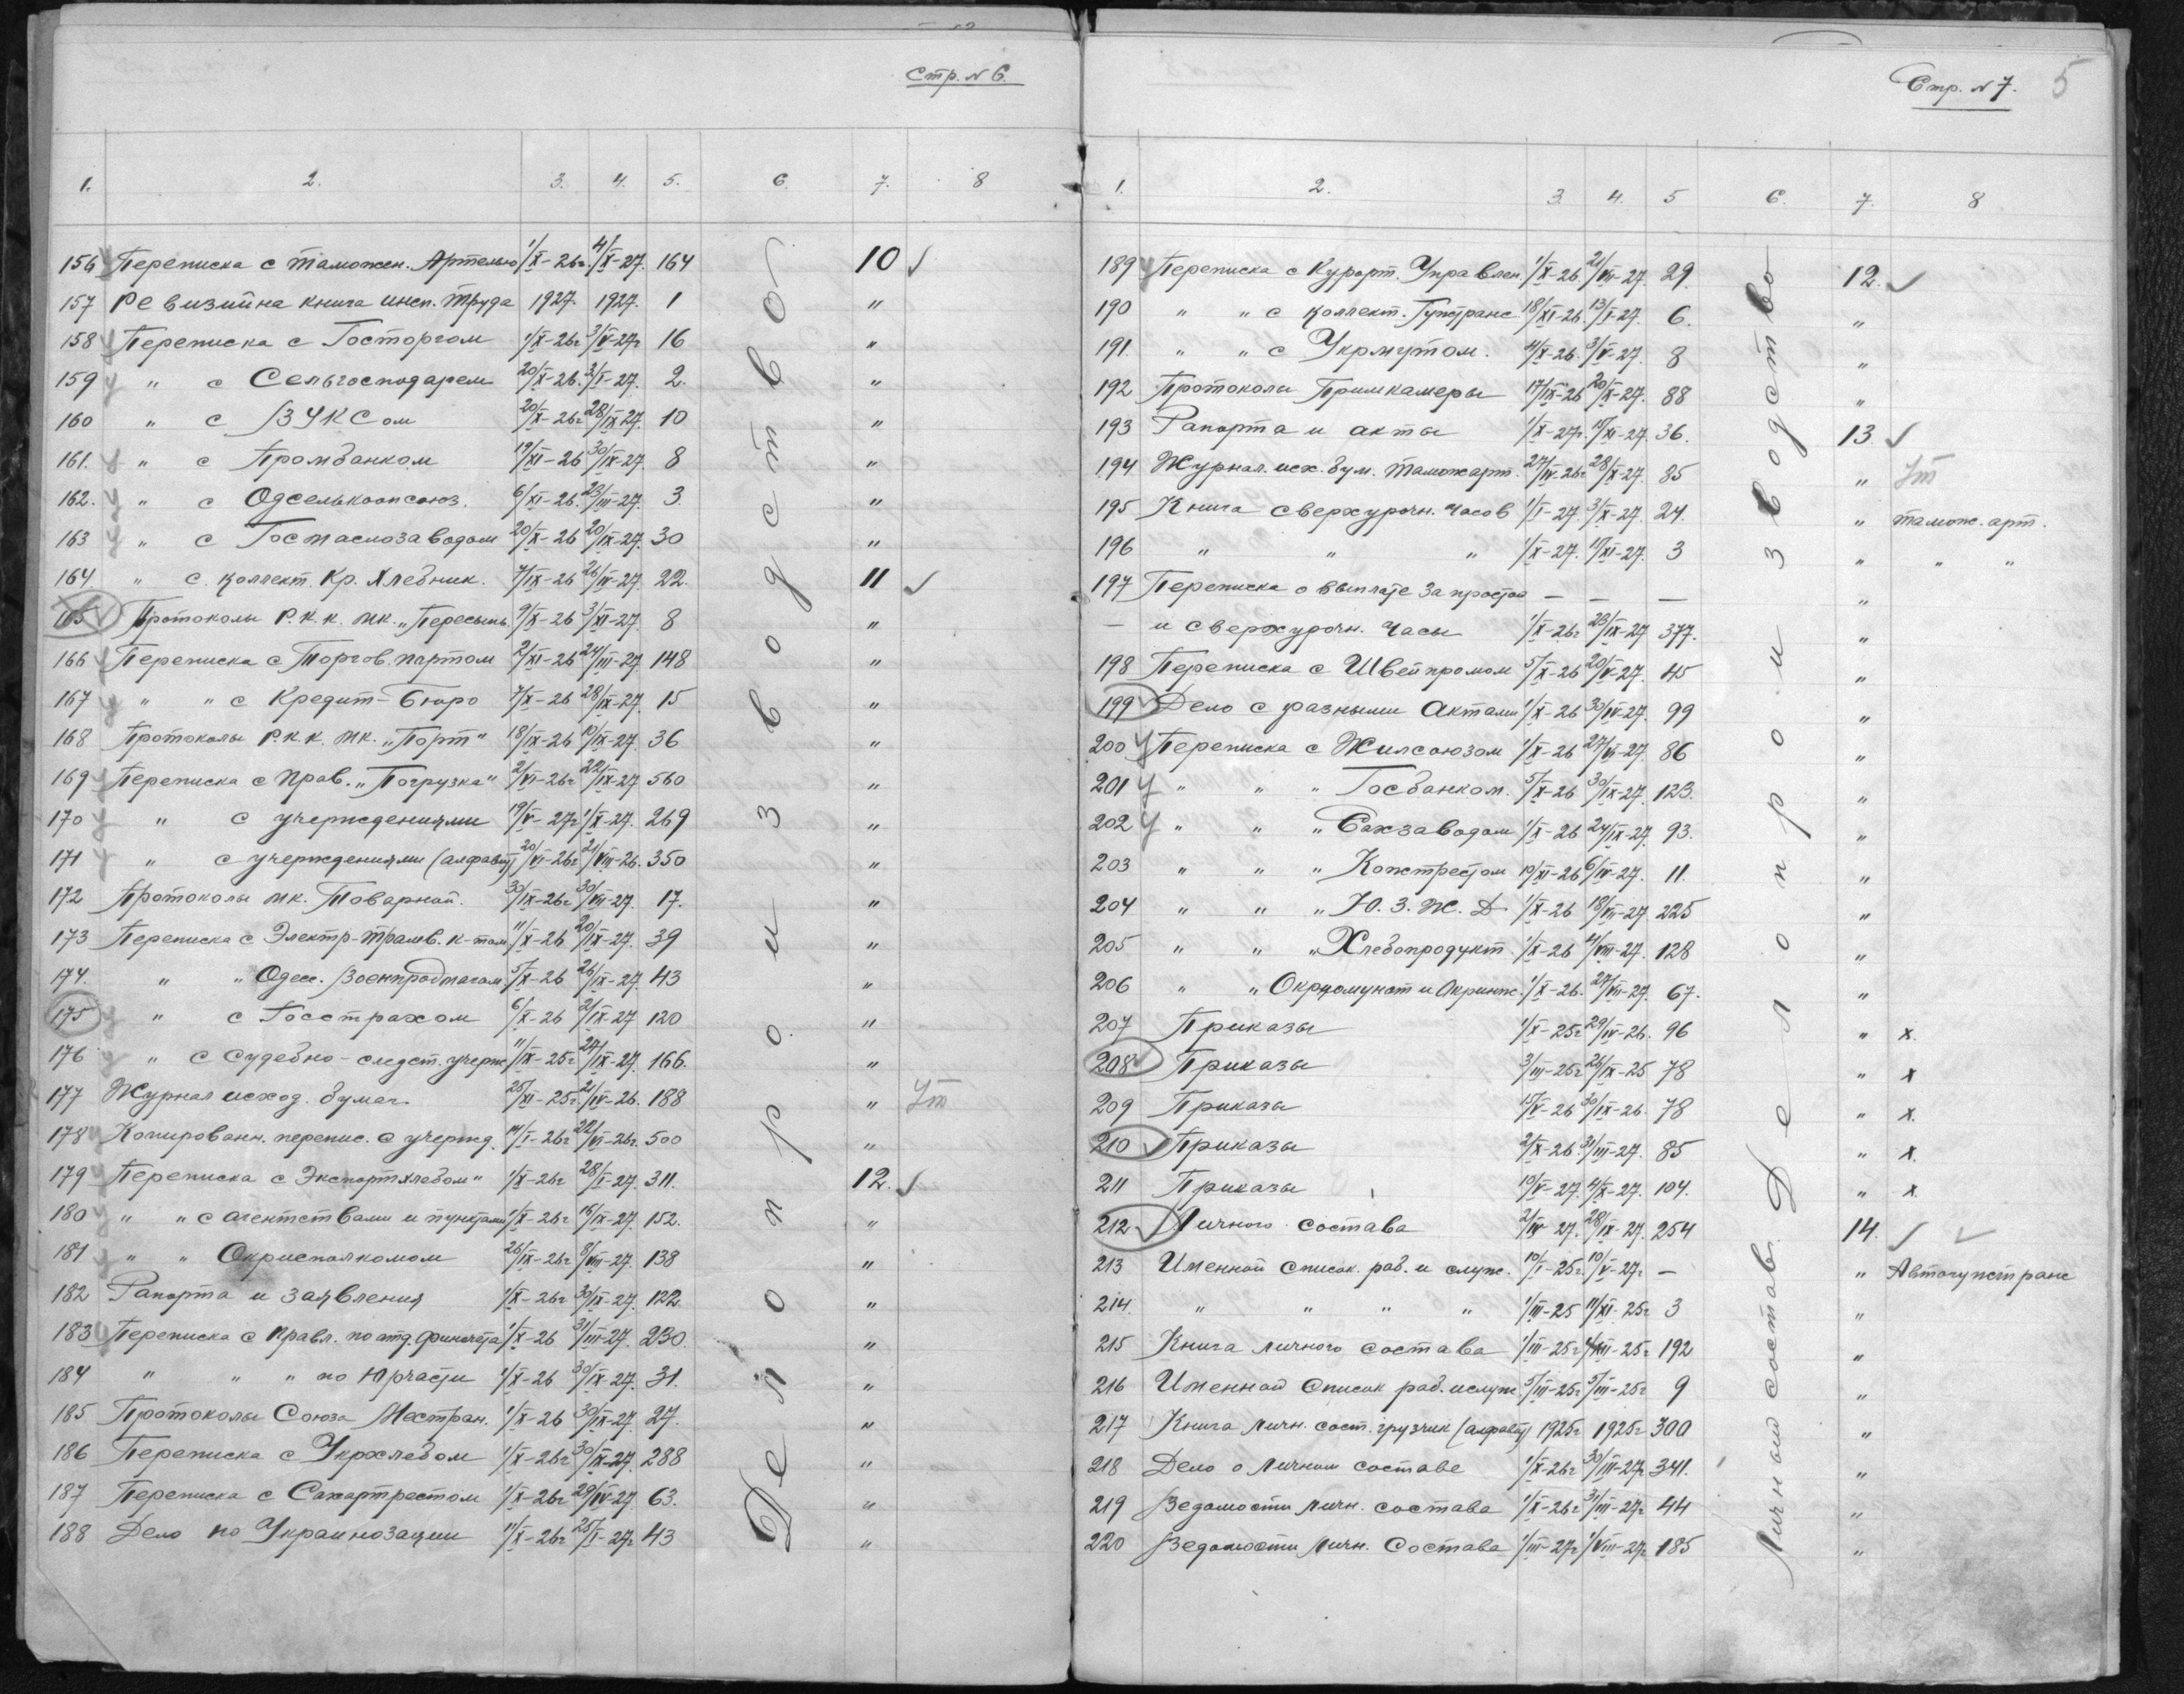 Стр. № 6.
1. 2. 3. 4. 5. 6. 7. 8
156 Переписка с таможен. Артелью 1/X-26г. 4/X-27. 164 10
157 Ревизийна книга инсп. труда 1927. 1927. 1 "
158 Переписка с Госторгом 1/X-26г 3/V-27г 16 "
159 " с Сельгосподарем 20/X-26. 3/I-27. 2. "
160 " с ВУКСом 20/X-26г 28/IX-27. 10 "
161. " с Промбанком 19/XI-26 30/IX-27. 8 "
162. " с Одселькоопсоюз. 6/XI-26. 23/III-27. 3. "
163 " с Госмаслозаводом 20/X-26 20/IX-27. 30 "
164 " с коллект. Кр. Хлебник. 7/IX-26 26/IV-27. 22. 11
165 Протоколы Р.К.К. мк. „Пересыпь. 9/X-26 3/XI-27. 8 "
166 Переписка с Торгов. портом 2/XI-26 24/III-27. 148 "
167 " " с Кредит-Бюро 7/X-26 28/IX-27. 15 "
168 Протоколы Р.К.К. мк. „Порт" 18/IX-26 10/IX-27. 36 "
169 Переписка с Прав. „Погрузка" 2/VI-26г 22/IX-27 560 "
170 " с учереждениями 19/V-27г 1/X-27. 269 "
171 " с учереждениями (алфавит) 20/VI-26г 21/VIII-26. 350 "
172 Протоколы мк. Товарной. 30/IX-26г 30/VII-27. 17. "
173 Переписка с Электр-трамв. к-том 11/X-26 20/IX-27. 39 "
174. " " Одес. Военпродмагом 5/X-26 26/IX-27. 43 "
175 " с Госстрахом 6/X-26 2/IX-27 120 "
176 " с судебно-следст. учереж 11/IX-25г 27/IX-27. 166. "
177 Журнал исход. бумаг. 25/XI-25г 21/IV-26. 188 " Ут
178 Копированн. перепис. с учережд. 14/I-26г 22/VI-26г. 500 "
179 Переписка с Экспортхлебом" 1/X-26г 28/I-27. 311. 12.
180 " " с агентствами и пунктами 1/X-26г 16/IX-27. 152. "
181 " " Окрисполкомом 26/IX-26г 8/VIII-27. 138 "
182 Рапорта и заявления 1/X-26г 30/IX-27. 122. "
183 Переписка с Правл. по отд. финсчета 1/X-26 31/III-27. 230. "
184 " " " по Юрчасти 1/X-26 30/IX-27. 31. "
185 Протоколы Союза Местран. 1/X-26 30/IX-27. 27. "
186 Переписка с Укрхлебом 1/X-26г 30/IX-27. 288 "
187 Переписка с Сахартрестом 1/X-26г 29/IV-27 63. "
188 Дело по Украинозации 11/X-26г 25/I-27г 43 "
Делопроизводство
Стр. № 7. 5
1. 2. 3. 4. 5 6. 7. 8
189 Переписка с Курорт. Управлен. 1/X-26 21/VII-27. 29. 12.
190 " " с коллект. Гужтранс 18/XI-26. 13/I-27. 6. "
191. " " с Укрмутом. 4/X-26. 3/V-27. 8 "
192 Протоколы Примкамеры 17/IX-26 20/X-27. 88 "
193 Рапорта и акты 1/X-27г. 17/XI-27. 36. 13
194 Журнал. исх. бум. таможарт. 27/IV-26г 28/X-27. 85 " Ут
195 Книга сверхурочн. часов 1/I-27. 3/X-27. 24. " тамож. арт.
196 " " " 1/X-27. 17/XI-27. 3 " " "
197 Переписка о выплате за простой — — — "
— и сверхурочн. часы 1/X-26г 23/IX-27 377. "
198 Переписка с Швейпромом 5/X-26 20/V-27. 45 "
199 Дело с разными Актами 1/X-26 30/IV-27. 99 "
200 Переписка с Жилсоюзом 1/X-26 27/VI-27. 86 "
201 " " " Госбанком. 5/X-26 30/IX-27. 123. "
202 " " " Сахзаводом 1/X-26 24/IX-27. 93. "
203 " " " Кожтрестом 10/XI-26 6/IV-27. 11. "
204 " " " Ю. З. Ж. Д. 1/X-26 18/VII-27 225 "
205 " " " Хлебопродукт. 1/X-26 4/VIII-27. 128 "
206 " " Окркомунот и Окринж. 1/X-26. 27/VII-27. 67. "
207 Приказы 1/X-25г 29/IV-26. 96 " х.
208 Приказы 3/III-25г 26/IX-25 78 " х
209 Приказы 15/V-26 30/IX-26. 78 " х.
210 Приказы 2/X-26. 31/III-27. 85 " х.
211 Приказы 10/V-27. 4/X-27. 104. " х.
212 Личного состава 2/IV-27. 28/IX-27. 254 14.
213 Именной список. раб. и служ. 10/I-25г 10/V-27г — " Автогужтранс
214. " " " " 1/III-25 11/XI-25г 3 "
215 Книга личного состава 1/III-25г 4/XII-25г 192 "
216 Именной список раб. и служ 5/III-25г 5/III-25г 9 "
217 Книга личн. сост. грузчик (алфавит) 1925г 1925г 300 "
218 Дело о личном составе 1/X-26г 30/III-27г 341. "
219 Ведомости личн. состава 1/X-26г 31/III-27г 44 "
220 Ведомости личн. Состава 1/III-27г 1/VIII-27г 185 "
Делопроизводство
Личный состав.